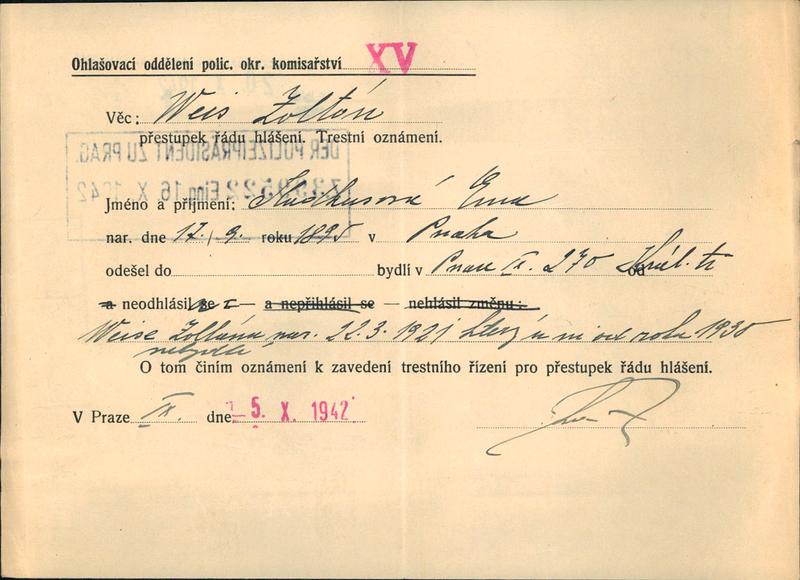 Ohlašovací oddělení polic. okr. komisařství XV
Věc: Weis Zoltán
přestupek řádu hlášení. Trestní oznámení.
DER POLIZEIPRÄSIDENT ZU PRAG.
Eing. 16. X. 1942
Jméno a příjmení: Ema
nar. dne 17./9. roku 1895 v Praha
odešel do bydlí v IX. 270
a neodhlásil se — a nepřihlásil se — nehlásil změnu:
Weise Zoltána nar. 22.3.1921 který u ní od roku 1930
O tom činím oznámení k zavedení trestního řízení pro přestupek řádu hlášení.
V Praze IX. dne -5. X. 1942